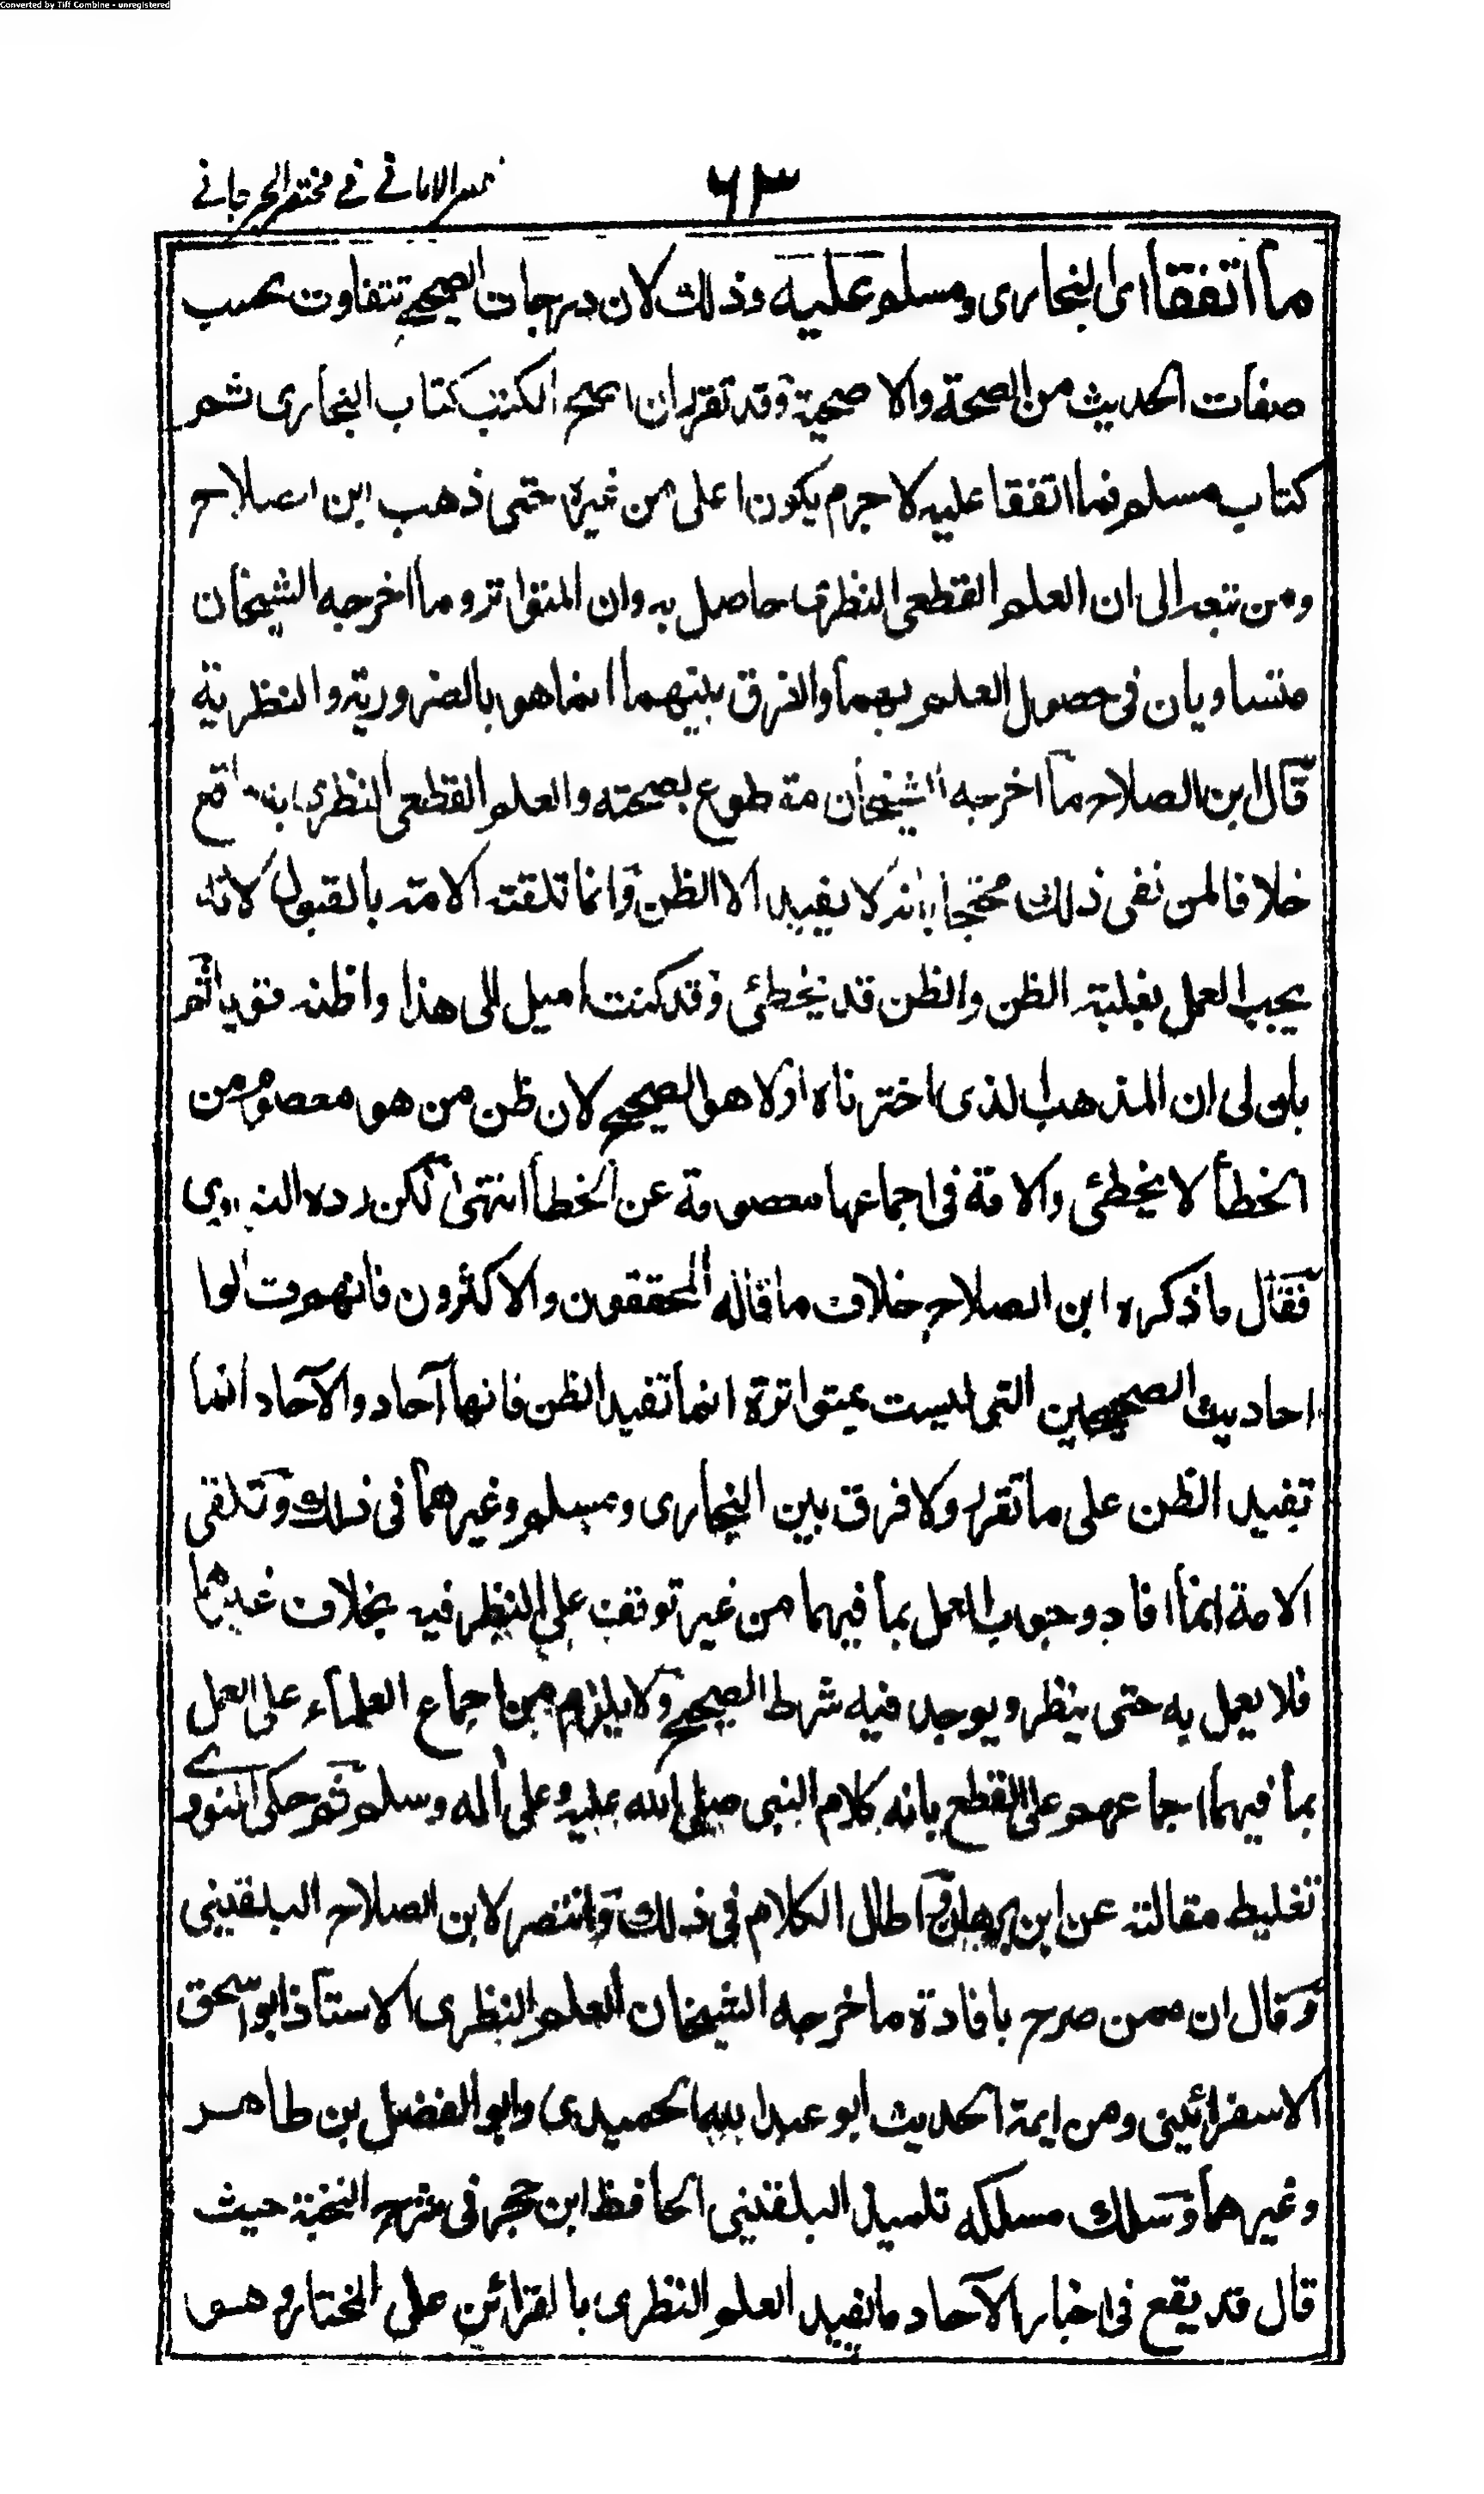 Converted by Tiff Combine - unregistered
۶۳
الامانی فی مختصر الجرجانی
ما اتفقا ای البخاری ومسلم علیه وذلك لان درجات الصحیح تتفاوت بحسب
صفات الحدیث من الصحة والاصحیة وقد تقرر ان اصح الکتب کتاب البخاری ثم
کتاب مسلم فما اتفقا علیه لاجرم یکون اعلی من غیره حتی ذهب ابن الصلاح
ومن تبعه الی ان العلم القطعی النظری حاصل به وان المتواتر وما اخرجه الشیخان
متساویان فی حصول العلم بهما والفرق بینهما انما هو بالضروریة والنظریة
قال ابن الصلاح ما اخرجه الشیخان مقطوع بصحته والعلم القطعی النظری به واقع
خلافا لمن نفی ذلك محتجا بانه لا یفید الا الظن وانما تلقته الامة بالقبول لانه
یجب العمل بغلبة الظن والظن قد یخطئ وقد کنت امیل الی هذا واظنه قویا ثم
بان لی ان المذهب الذی اخترناه اولا هو الصحیح لان ظن من هو معصوم من
الخطأ لا یخطئ والامة فی اجماعها معصومة عن الخطأ انتهی لکن رده النووی
فقال ما ذکره ابن الصلاح خلاف ما قاله المحققون والاکثرون فانهم قالوا
احادیث الصحیحین التی لیست بمتواترة انما تفید الظن فانها آحاد والآحاد انما
تفید الظن علی ما تقرر ولا فرق بین البخاری ومسلم وغیرهما فی ذلك وتلقی
الامة انما افاد وجوب العمل بما فیهما من غیر توقف علی النظر فیه بخلاف غیرهما
فلا یعمل به حتی ینظر ویوجد فیه شرط الصحیح ولا یلزم من اجماع العلماء علی العمل
بما فیهما اجماعهم علی القطع بانه کلام النبی صلی الله علیه وعلی آله وسلم ثم حکی النووی
تغلیط مقالته عن ابن برهان واطال الکلام فی ذلك وانتصر لابن الصلاح البلقینی
وقال ان ممن صرح بافادة ما خرجه الشیخان العلم النظری الاستاذ ابو اسحق
الاسفرائینی ومن ایمة الحدیث ابو عبد الله الحمیدی وابو الفضل بن طاهر
وغیرهما وسلك مسلکه تلمیذ البلقینی الحافظ ابن حجر فی شرح النخبة حیث
قال قد یقع فی اخبار الآحاد ما یفید العلم النظری بالقرائن علی المختار وهو